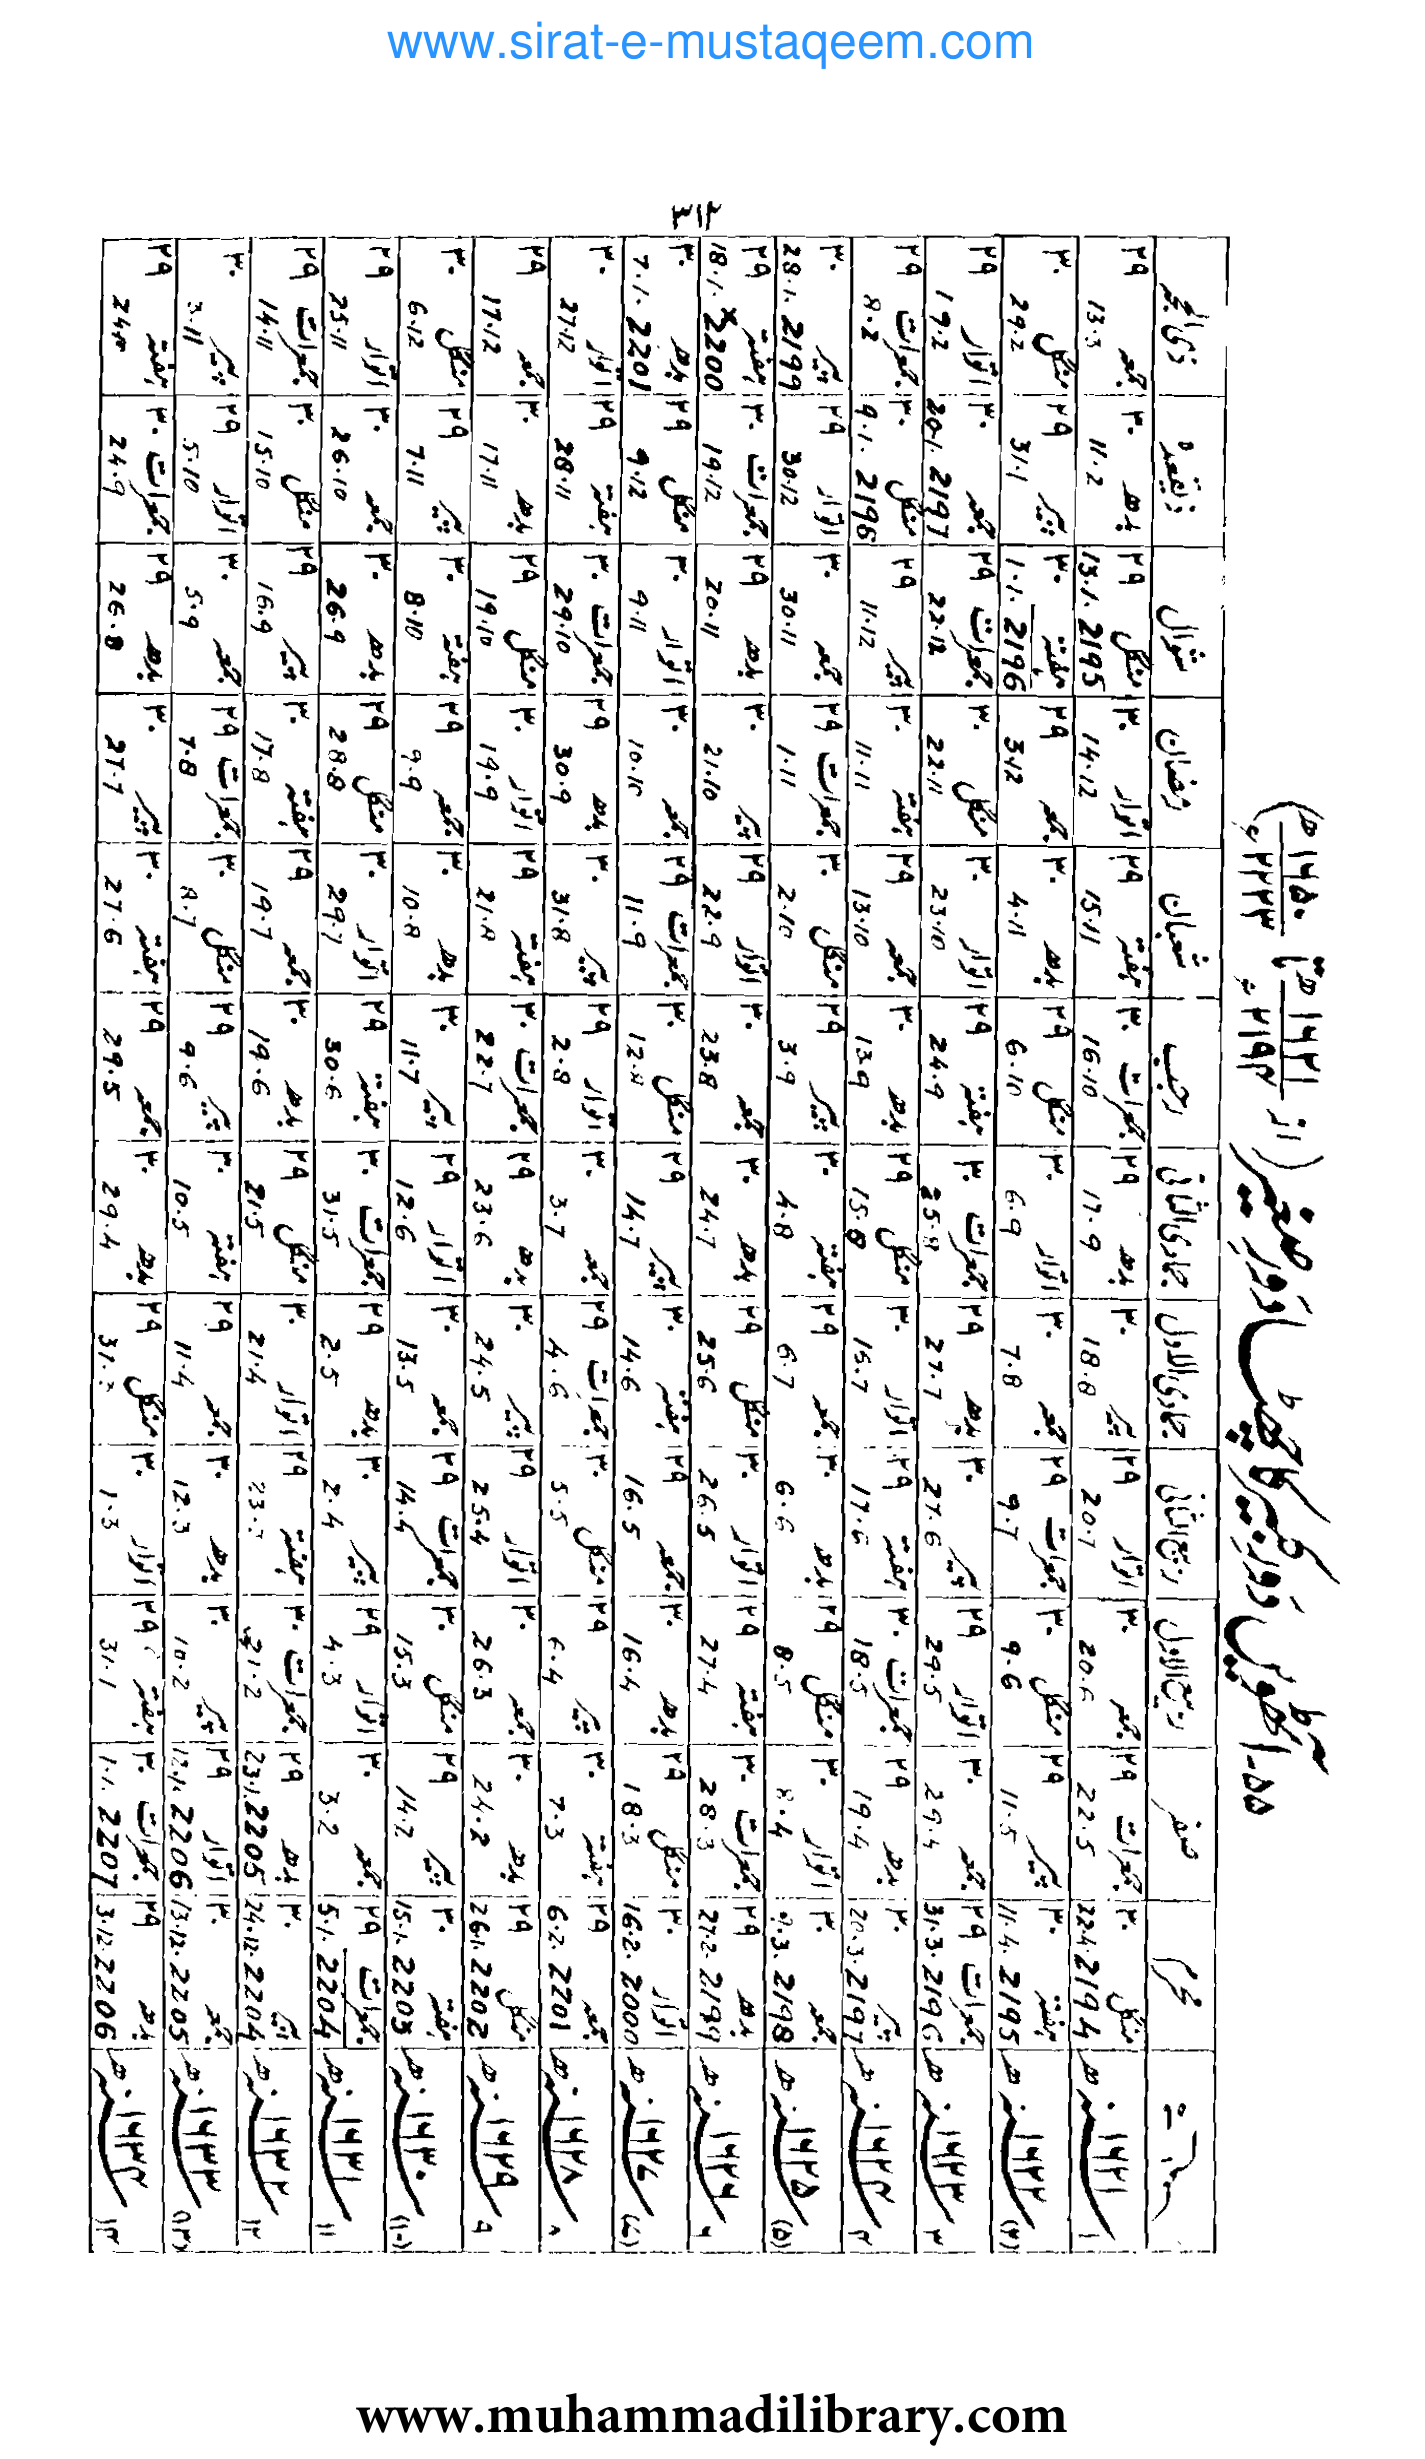 www.sirat-e-mustaqeem.com
۴۱۳
سنہ محرم صفر ربیع الاول ربیع الثانی جمادی الاول جمادی الثانی رجب شعبان رمضان شوال ذیقعدہ ذی الحجہ
۱ ۱۶۲۱ھ منگل ۳۰ 22.4.2194 جمعرات ۲۹ 22.5 جمعہ ۳۰ 20.6 اتوار ۲۹ 20.7 پیر ۳۰ 18.8 بدھ ۲۹ 17.9 جمعرات ۳۰ 16.10 ہفتہ ۲۹ 15.11 اتوار ۳۰ 14.12 منگل ۲۹ 13.1.2195 بدھ ۳۰ 11.2 جمعہ ۲۹ 13.3
(۲) ۱۶۲۲ھ ہفتہ ۳۰ 11.4.2195 پیر ۲۹ 11.5 منگل ۳۰ 9.6 جمعرات ۲۹ 9.7 جمعہ ۳۰ 7.8 اتوار ۳۰ 6.9 منگل ۲۹ 6.10 بدھ ۳۰ 4.11 جمعہ ۲۹ 3.12 ہفتہ ۳۰ 1.1.2196 پیر ۲۹ 31.1 منگل ۳۰ 29.2
۳ ۱۶۲۳ھ جمعرات ۲۹ 31.3.2196 جمعہ ۳۰ 29.4 اتوار ۲۹ 29.5 پیر ۳۰ 27.6 بدھ ۲۹ 27.7 جمعرات ۳۰ 25.8 ہفتہ ۲۹ 24.9 اتوار ۳۰ 23.10 منگل ۳۰ 22.11 جمعرات ۲۹ 22.12 جمعہ ۳۰ 20.1.2197 اتوار ۲۹ 19.2
۴ ۱۶۲۴ھ پیر ۳۰ 20.3.2197 بدھ ۲۹ 19.4 جمعرات ۳۰ 18.5 ہفتہ ۲۹ 17.6 اتوار ۳۰ 16.7 منگل ۲۹ 15.8 بدھ ۳۰ 13.9 جمعہ ۲۹ 13.10 ہفتہ ۳۰ 11.11 پیر ۲۹ 11.12 منگل ۳۰ 9.1.2196 جمعرات ۲۹ 8.2
(۵) ۱۶۲۵ھ جمعہ ۳۰ 9.3.2198 اتوار ۳۰ 8.4 منگل ۲۹ 8.5 بدھ ۳۰ 6.6 جمعہ ۲۹ 6.7 ہفتہ ۳۰ 4.8 پیر ۲۹ 3.9 منگل ۳۰ 2.10 جمعرات ۲۹ 1.11 جمعہ ۳۰ 30.11 اتوار ۲۹ 30.12 پیر ۳۰ 28.1.2199
۶ ۱۶۲۶ھ بدھ ۲۹ 27.2.2199 جمعرات ۳۰ 28.3 ہفتہ ۲۹ 27.4 اتوار ۳۰ 26.5 منگل ۲۹ 25.6 بدھ ۳۰ 24.7 جمعہ ۳۰ 23.8 اتوار ۲۹ 22.9 پیر ۳۰ 21.10 بدھ ۲۹ 20.11 جمعرات ۳۰ 19.12 ہفتہ ۲۹ 18.1.2200
(۷) ۱۶۲۷ھ اتوار ۳۰ 16.2.2000 منگل ۲۹ 18.3 بدھ ۳۰ 16.4 جمعہ ۲۹ 16.5 ہفتہ ۳۰ 14.6 پیر ۲۹ 14.7 منگل ۳۰ 12.8 جمعرات ۲۹ 11.9 جمعہ ۳۰ 10.10 اتوار ۳۰ 9.11 منگل ۲۹ 9.12 بدھ ۳۰ 7.1.2201
۸ ۱۶۲۸ھ جمعہ ۲۹ 6.2.2201 ہفتہ ۳۰ 7.3 پیر ۲۹ 6.4 منگل ۳۰ 5.5 جمعرات ۲۹ 4.6 جمعہ ۳۰ 3.7 اتوار ۲۹ 2.8 پیر ۳۰ 31.8 بدھ ۲۹ 30.9 جمعرات ۳۰ 29.10 ہفتہ ۲۹ 28.11 اتوار ۳۰ 27.12
۹ ۱۶۲۹ھ منگل ۲۹ 26.1.2202 بدھ ۳۰ 24.2 جمعہ ۳۰ 26.3 اتوار ۲۹ 25.4 پیر ۳۰ 24.5 بدھ ۲۹ 23.6 جمعرات ۳۰ 22.7 ہفتہ ۲۹ 21.8 اتوار ۳۰ 19.9 منگل ۲۹ 19.10 بدھ ۳۰ 17.11 جمعہ ۲۹ 17.12
(۱۰) ۱۶۳۰ھ ہفتہ ۳۰ 15.1.2203 پیر ۲۹ 14.2 منگل ۳۰ 15.3 جمعرات ۲۹ 14.4 جمعہ ۳۰ 13.5 اتوار ۲۹ 12.6 پیر ۳۰ 11.7 بدھ ۳۰ 10.8 جمعہ ۲۹ 9.9 ہفتہ ۳۰ 8.10 پیر ۲۹ 7.11 منگل ۳۰ 6.12
۱۱ ۱۶۳۱ھ جمعرات ۲۹ 5.1.2204 جمعہ ۳۰ 3.2 اتوار ۲۹ 4.3 پیر ۳۰ 2.4 بدھ ۲۹ 2.5 جمعرات ۳۰ 31.5 ہفتہ ۲۹ 30.6 اتوار ۳۰ 29.7 منگل ۲۹ 28.8 بدھ ۳۰ 26.9 جمعہ ۳۰ 26.10 اتوار ۲۹ 25.11
۱۲ ۱۶۳۲ھ پیر ۳۰ 24.12.2204 بدھ ۲۹ 23.1.2205 جمعرات ۳۰ 21.2 ہفتہ ۲۹ 23.3 اتوار ۳۰ 21.4 منگل ۲۹ 21.5 بدھ ۳۰ 19.6 جمعہ ۲۹ 19.7 ہفتہ ۳۰ 17.8 پیر ۲۹ 16.9 منگل ۳۰ 15.10 جمعرات ۲۹ 14.11
(۱۳) ۱۶۳۳ھ جمعہ ۳۰ 13.12.2205 اتوار ۲۹ 12.1.2206 پیر ۳۰ 10.2 بدھ ۳۰ 12.3 جمعہ ۲۹ 11.4 ہفتہ ۳۰ 10.5 پیر ۲۹ 9.6 منگل ۳۰ 8.7 جمعرات ۲۹ 7.8 جمعہ ۳۰ 5.9 اتوار ۲۹ 5.10 پیر ۳۰ 3.11
۱۴ ۱۶۳۴ھ بدھ ۲۹ 3.12.2206 جمعرات ۳۰ 1.1.2207 ہفتہ ۲۹ 31.1 اتوار ۳۰ 1.3 منگل ۲۹ 31.3 بدھ ۳۰ 29.4 جمعہ ۲۹ 29.5 ہفتہ ۳۰ 27.6 پیر ۳۰ 27.7 بدھ ۲۹ 26.8 جمعرات ۳۰ 24.9 ہفتہ ۲۹
www.muhammadilibrary.com